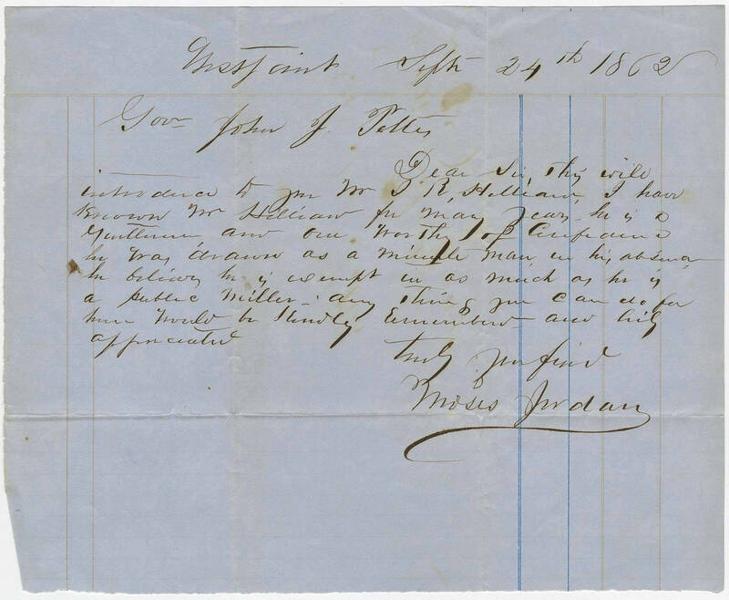 Westpoint Sept 24th 1862
Gov John J. Pettus
Dear Sir, This will
introduce to you Mr J R, Hilliard, I have
known Mr Hilliard for many years he is a
Gentleman and one worthy of confidence
he was drawn as a minute man, in his absence
he believes he is exempt in as much as he is
a public miller - any thing you can do for
him would be kindly Remembered and hily
appreciated
truly your friend
Moses Jordan